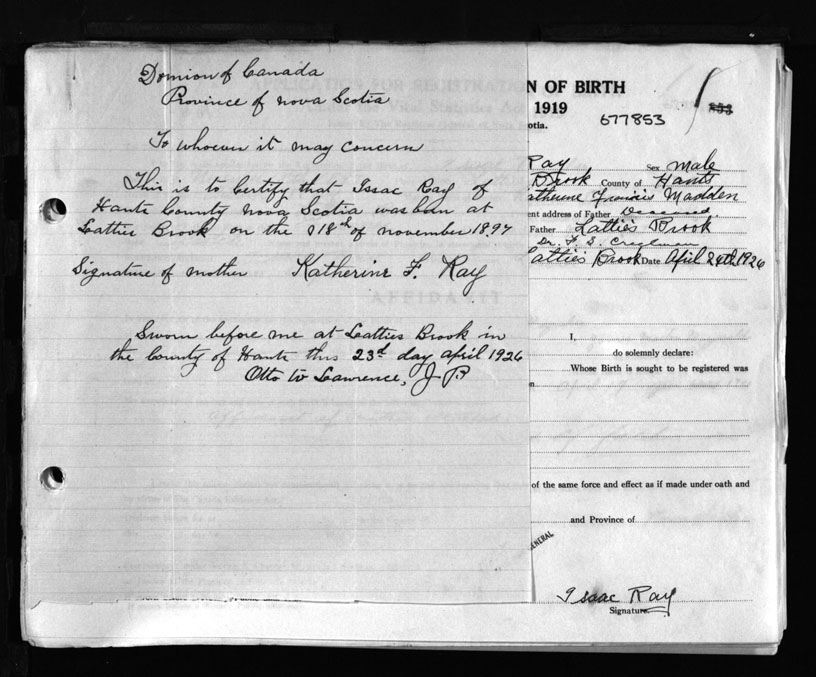 Domion of Canada
Province of nova Scotia
To whoever it may concern
This is to Certify that Issac Ray of
Hants County Nova Scotia was born at
Latties Brook on the 18th of november 1897
Signature of mother Katherine F. Ray
Sworn before me at Latties Brook in
the County of Hants this 23rd day april 1926
Otto W Lawrence, J P
N OF BIRTH
1919
otia.
677853
Ray Sex male
Brook County of Hants
atherine Francis Madden
ent address of Father Deceased.
Father Latties Brook
Dr. F. S.
Latties Brook Date April 24th, 1926
I,
do solemnly declare:
Whose Birth is sought to be registered was
n
of the same force and effect as if made under oath and
and Province of
GENERAL
Isaac Ray
Signature.